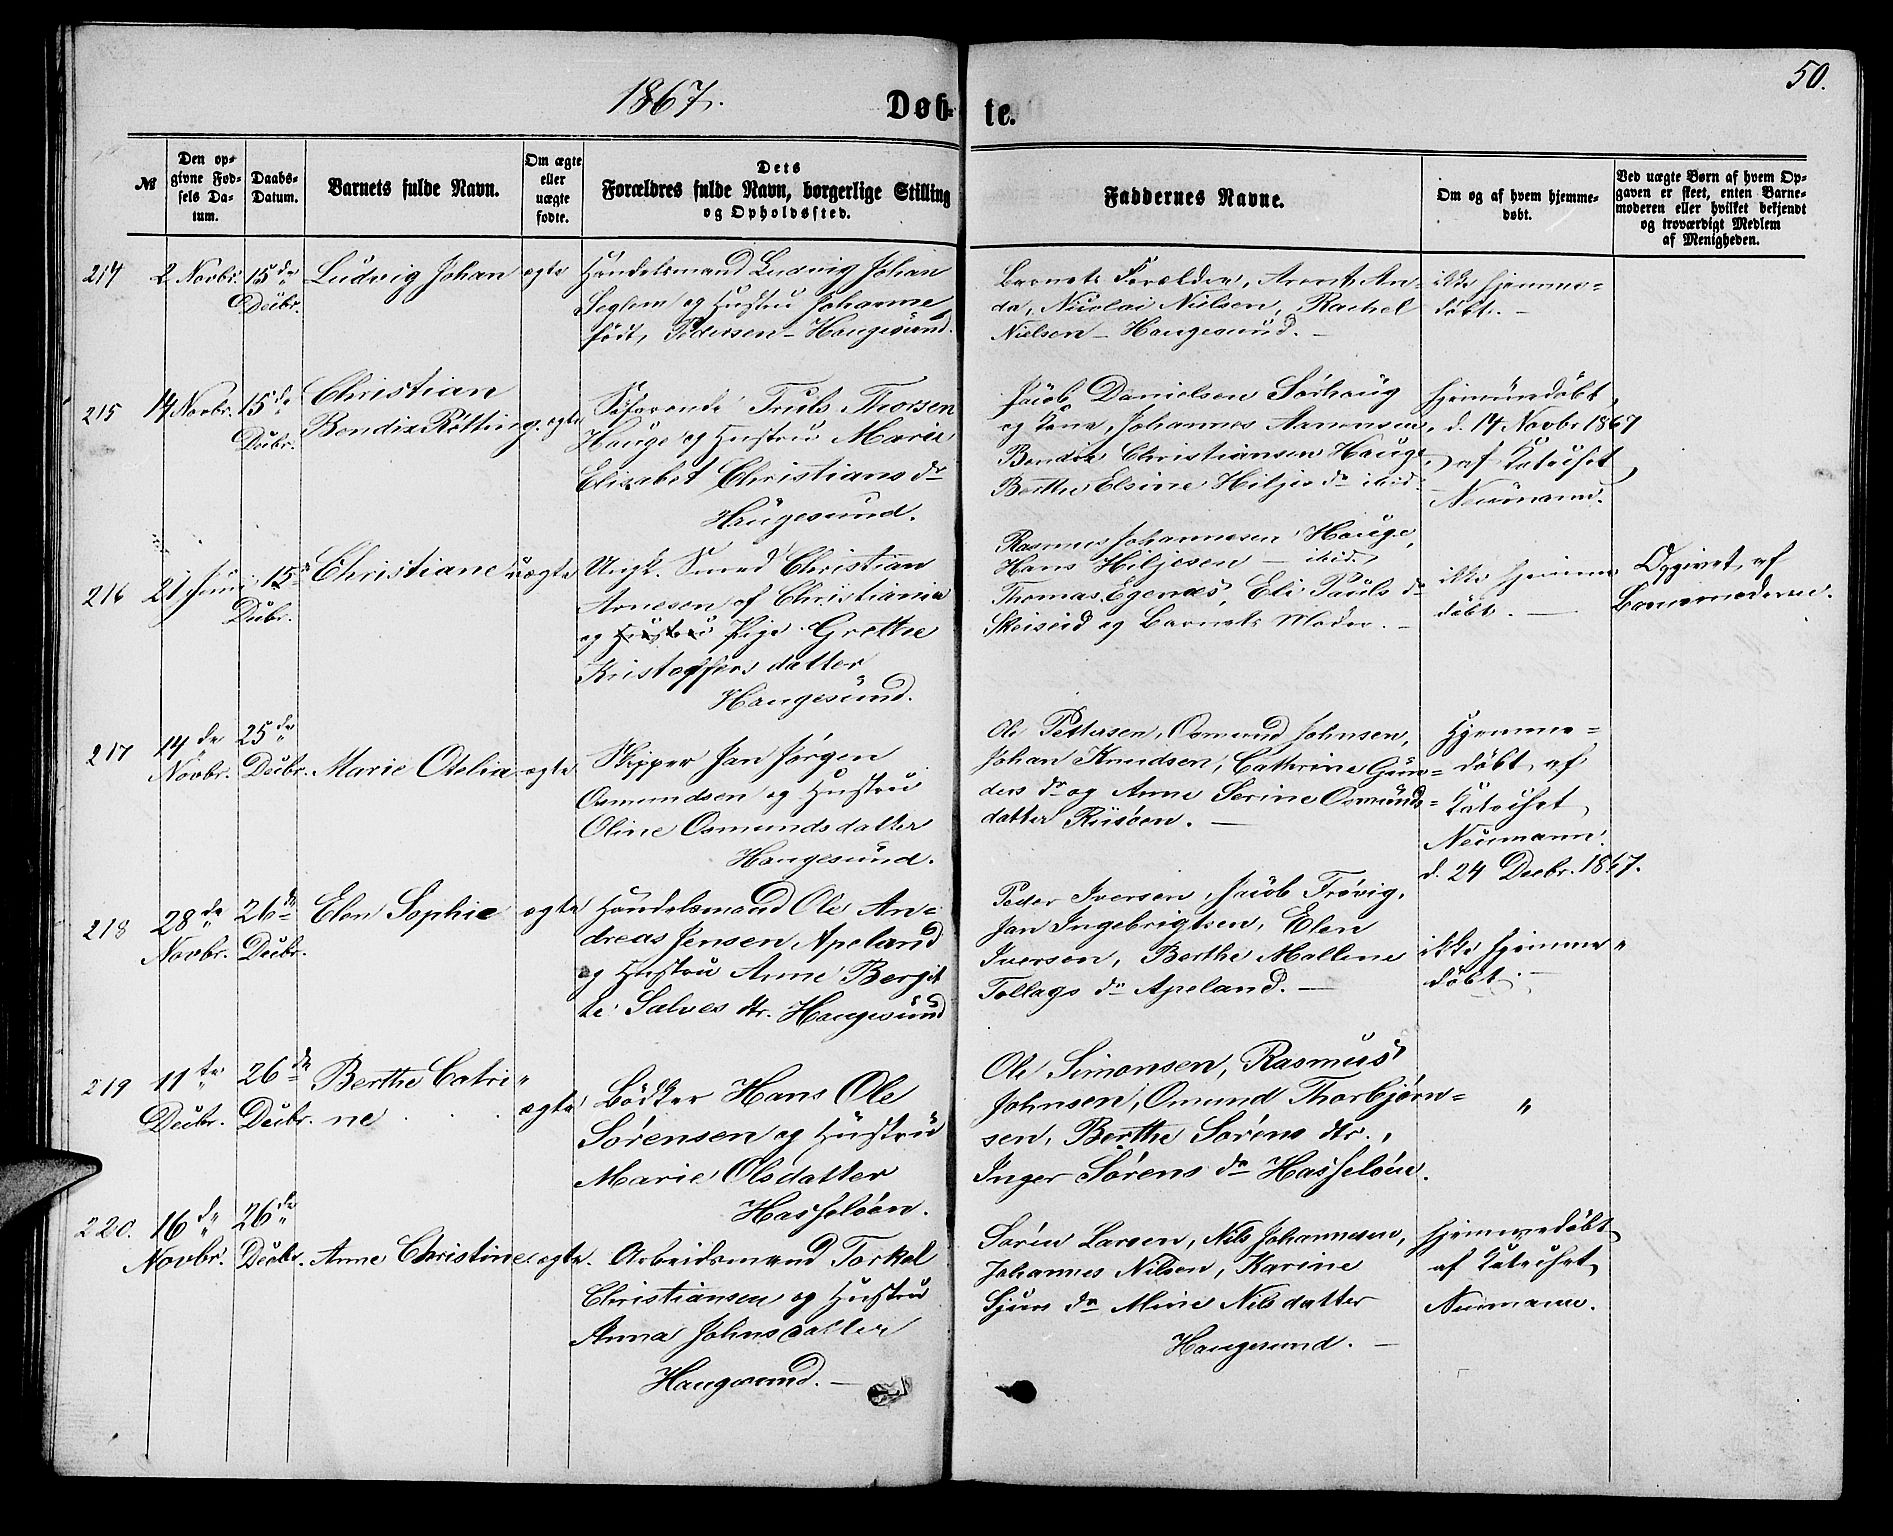 1867.
Døb-
te.
50.
№
Den op-
givne Fød-
sels Da-
tum.
Daabs-
Datum.
Barnets fulde Navn.
Om ægte
eller
uægte
fødte.
Dets
Forældres fulde Navn, borgerlige Stilling
og Opholdssted.
Faddernes Navne.
Om og af hvem hjemme-
døbt.
Ved uægte Børn af hvem Op-
gaven er skeet, enten Barne-
moderen eller hvilket bekjendt
og troværdigt Medlem
af Menigheden.
214
2 Novbr.
15de
Decbr.
Ludvig Johan
ægte
Handelsmand Ludvig Johan
Seglem og Hustru Johanne
født, Pedersen - Haugesund.
Barnets Forældre, Arent An-
da, Nicolai Nielsen, Rachel
Nielsen - Haugesund. -
ikke hjemme-
døbt. -
215
14 Novbr.
15de
Decbr.
Christian
Bendix Rötting.
ægte
Söfarende Truls Thorsen
Hauge og Hustru Marie
Elisabet Christians dr
Haugesund.
Jacob Danielsen Sörhaug
og Kone, Johannes Aamonsen,
Bendix Christiansen Hauge,
Berthe Elsine Hiljes dr ibid.
hjemmedøbt
d. 14 Novbr 1867
af Katechet
Neumann.
216
21 Juni
15de
Decbr.
Christiane
uægte
Ungk. Smed Christian
Arnesen af Christiania
og Hustru Pige Grethe
Kristoffersdatter
Haugesund.
Rasmus Johannesen Hauge,
Hans Hiljesen - ibid.,
Thomas Egenæs, Eli Pauls dr
Skeiseid og Barnets Moder. -
ikke hjemme
døbt. -
Opgivet af
Barnemoderen.
217
14de
Novbr.
25de
Decbr.
Marie Otelia
ægte
Skipper Jan Jörgen
Osmundsen og Hustru
Oline Osmundsdatter
Haugesund.
Ole Pettersen, Osmund Johnsen,
Johan Knudsen, Cathrine Gun-
ders dr og Anne Serine Osmunds-
datter Risöen. -
Hjemme-
døbt af
Katechet
Neumann
d. 24 Decbr. 1867.
218
28de
Novbr.
26de
Decbr.
Elen Sophie
ægte
Handelsmand Ole An-
dreas Jensen Apeland
og Hustru Anne Bergit
te Salves dtr. Haugesund
Peder Iversen, Jacob Frövig,
Jan Ingebrigtsen, Elen
Iversen, Berthe Malline
Tollags dr Apeland. -
ikke hjemme
døbt. -
219
11te
Decbr.
26de
Decbr.
Berthe Catri-
ne
ægte
Bödker Hans Ole
Sörensen og Hustru
Marie Olsdatter
Hasselöen.
Ole Simonsen, Rasmus
Johnsen, Omund Thorbjörn-
sen, Berthe Sörens dtr.,
Inger Sörens dr Hasselöen.
"
220.
16de
Novbr.
26de
Decbr.
Anne Christine
ægte.
Arbeidsmand Torkel
Christiansen og Hustru
Anna Johnsdatter
Haugesund. -
Sören Larsen, Nils Johannesen,
Johannes Nilsen, Karine
Sjurs dr Aline Nilsdatter
Haugesund. -
hjemmedøbt
af Katechet
Neumann.